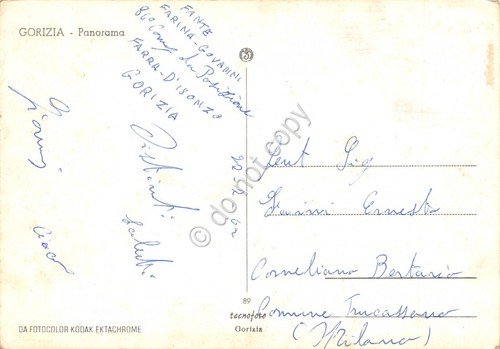 GORIZIA - Panorama
FANTE
FARINA GIOVANNI
86o Comp da Posizione
FARRA-D'ISONZO
GORIZIA
Distinti
saluti
Giovanni
ciao
22-2-62
Gent Sig
Ernesto
Corneliano Bertario
Comune Truccazzano
(Milano)
89
tecnofoto
Gorizia
DA FOTOCOLOR KODAK EKTACHROME
do not copy